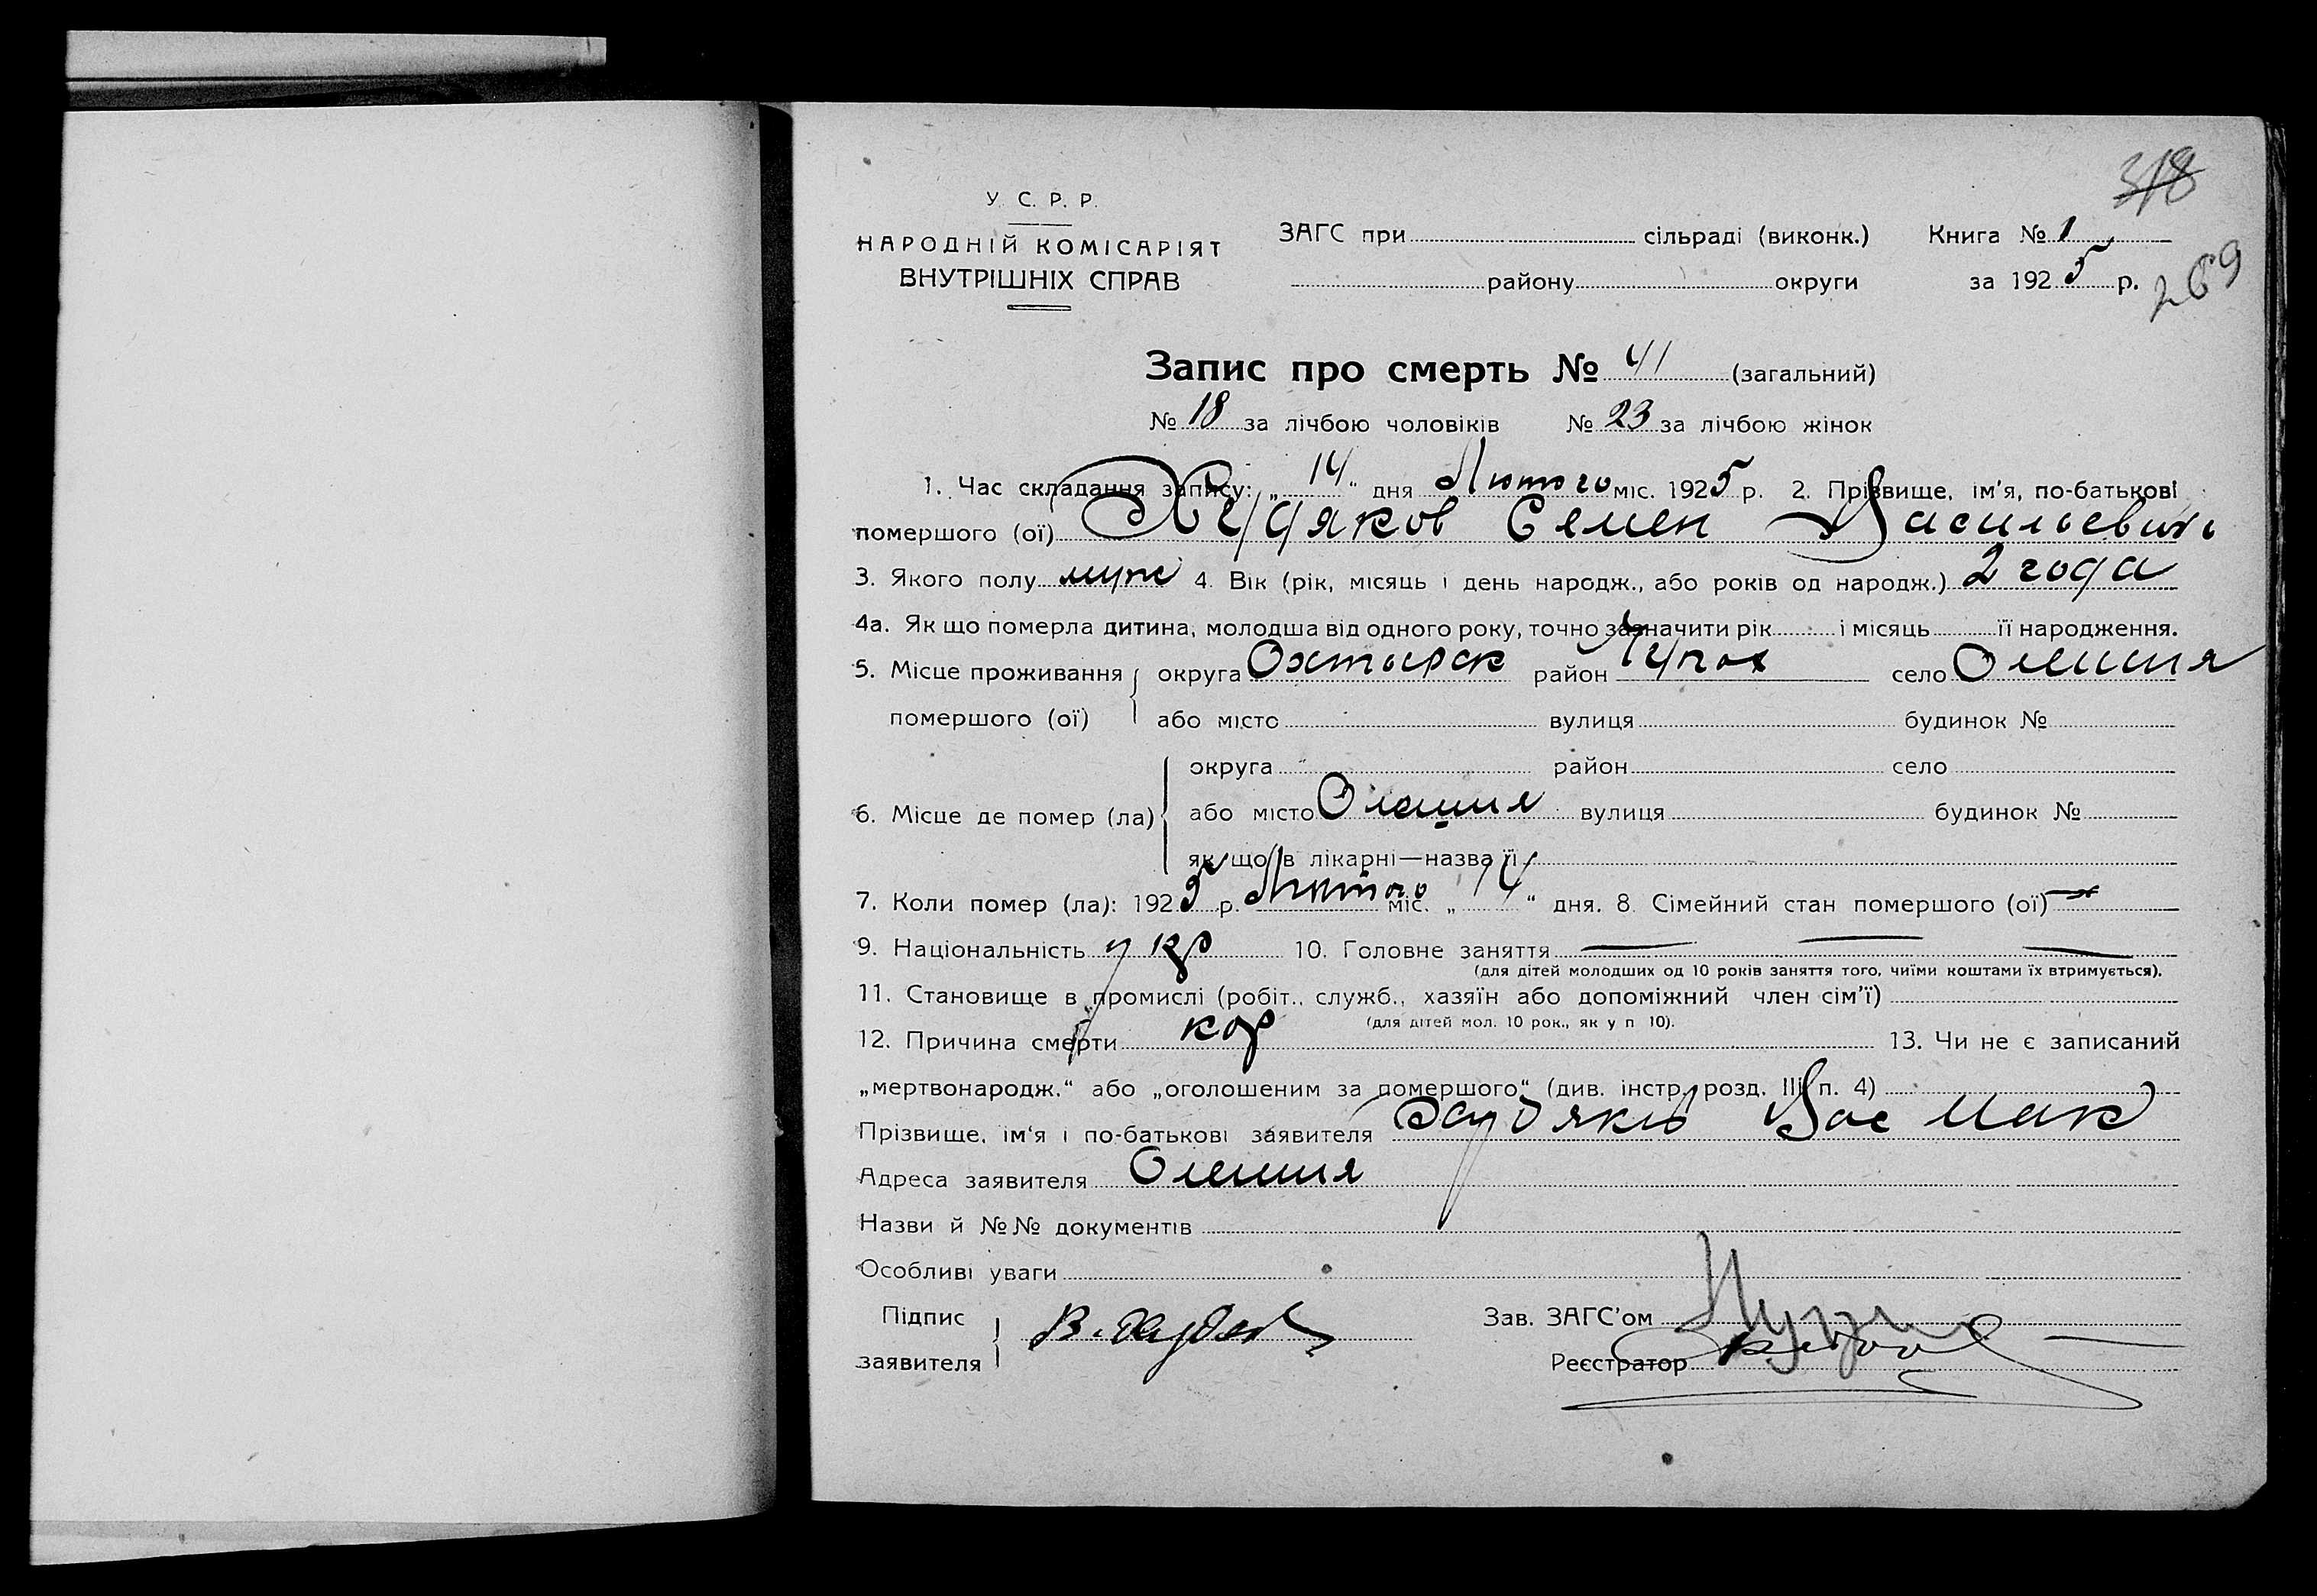 318
У. С. Р. Р.
НАРОДНІЙ КОМІСАРІЯТ
ВНУТРІШНІХ СПРАВ
ЗАГС при сільраді (виконк.) Книга № 1
району округи за 1925 р.
269
Запис про смерть № 41 (загальний)
№ 18 за лічбою чоловіків № 23 за лічбою жінок
1. Час складання запису: „ 14 “ дня Лютого міс. 1925 р. 2. Прізвище, ім'я, по-батькові
помершого (ої) Худяков Семен Васильевич
3. Якого полу муж 4. Вік (рік, місяць і день народж., або років од народж.) 2 года
4а. Як що померла дитина, молодша від одного року, точно зазначити рік і місяць її народження.
5. Місце проживання округа Охтырск район село Олешня
помершого (ої) або місто вулиця будинок №
округа район село
6. Місце де помер (ла) або місто Олешня вулиця будинок №
як що в лікарні—назва її
7. Коли помер (ла): 1925 р. Лютого міс. „ 14 “ дня. 8. Сімейний стан помершого (ої) —
9. Національність укр 10. Головне заняття — — —
(для дітей молодших од 10 років заняття того, чиїми коштами їх втримується).
11. Становище в промислі (робіт., служб., хазяїн або допоміжний член сім'ї)
(для дітей мол. 10 рок., як у п 10).
12. Причина смерти кор 13. Чи не є записаний
„мертвонародж.“ або „оголошеним за помершого“ (див. інстр. розд. III п. 4)
Прізвище, ім'я і по-батькові заявителя Худяків Вас Мак
Адреса заявителя Олешня
Назви й №№ документів
Особливі уваги
Підпис Зав. ЗАГС'ом
заявителя В. Худяков
Реєстратор